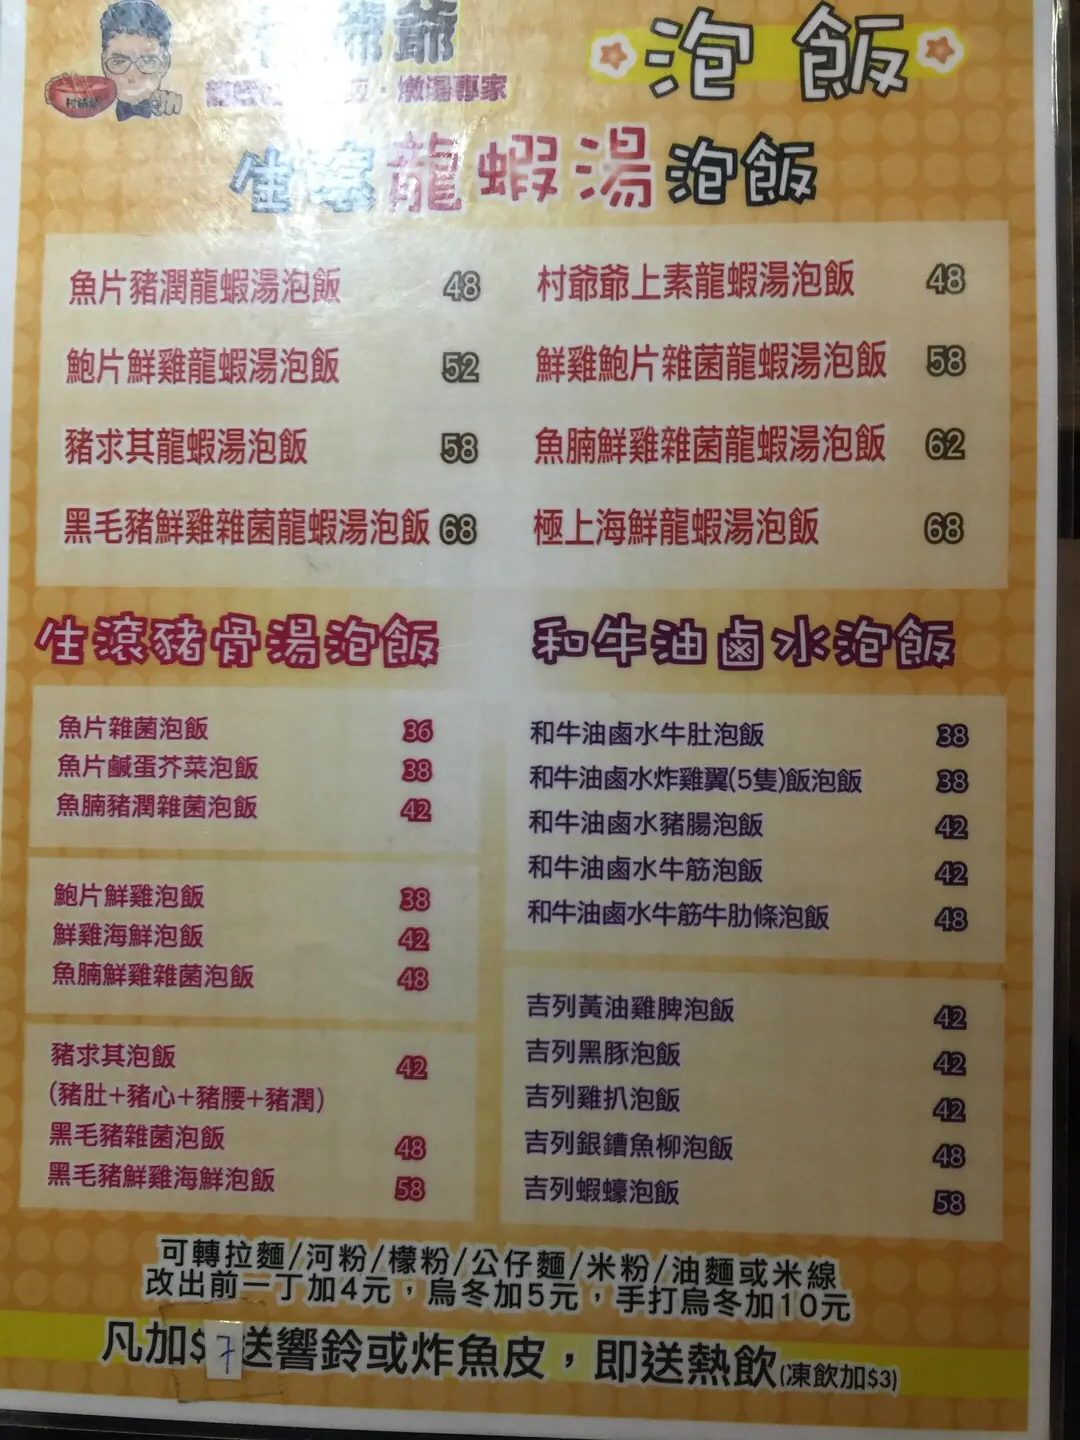 爺爺
燉湯專家
村爺爺
泡飯
生滾龍蝦湯泡飯
魚片豬潤龍蝦湯泡飯 48
鮑片鮮雞龍蝦湯泡飯 52
豬求其龍蝦湯泡飯 58
黑毛豬鮮雞雜菌龍蝦湯泡飯 68
村爺爺上素龍蝦湯泡飯 48
鮮雞鮑片雜菌龍蝦湯泡飯 58
魚腩鮮雞雜菌龍蝦湯泡飯 62
極上海鮮龍蝦湯泡飯 68
生滾豬骨湯泡飯
魚片雜菌泡飯 36
魚片鹹蛋芥菜泡飯 38
魚腩豬潤雜菌泡飯 42
鮑片鮮雞泡飯 38
鮮雞海鮮泡飯 42
魚腩鮮雞雜菌泡飯 48
豬求其泡飯 42
(豬肚+豬心+豬腰+豬潤)
黑毛豬雜菌泡飯 48
黑毛豬鮮雞海鮮泡飯 58
和牛油鹵水泡飯
和牛油鹵水牛肚泡飯 38
和牛油鹵水炸雞翼(5隻)飯泡飯 38
和牛油鹵水豬腸泡飯 42
和牛油鹵水牛筋泡飯 42
和牛油鹵水牛筋牛肋條泡飯 48
吉列黃油雞脾泡飯 42
吉列黑豚泡飯 42
吉列雞扒泡飯 42
吉列銀鱈魚柳泡飯 48
吉列蝦蠔泡飯 58
可轉拉麵/河粉/檬粉/公仔麵/米粉/油麵或米線
改出前一丁加4元，烏冬加5元，手打烏冬加10元
凡加$7送響鈴或炸魚皮，即送熱飲(凍飲加$3)